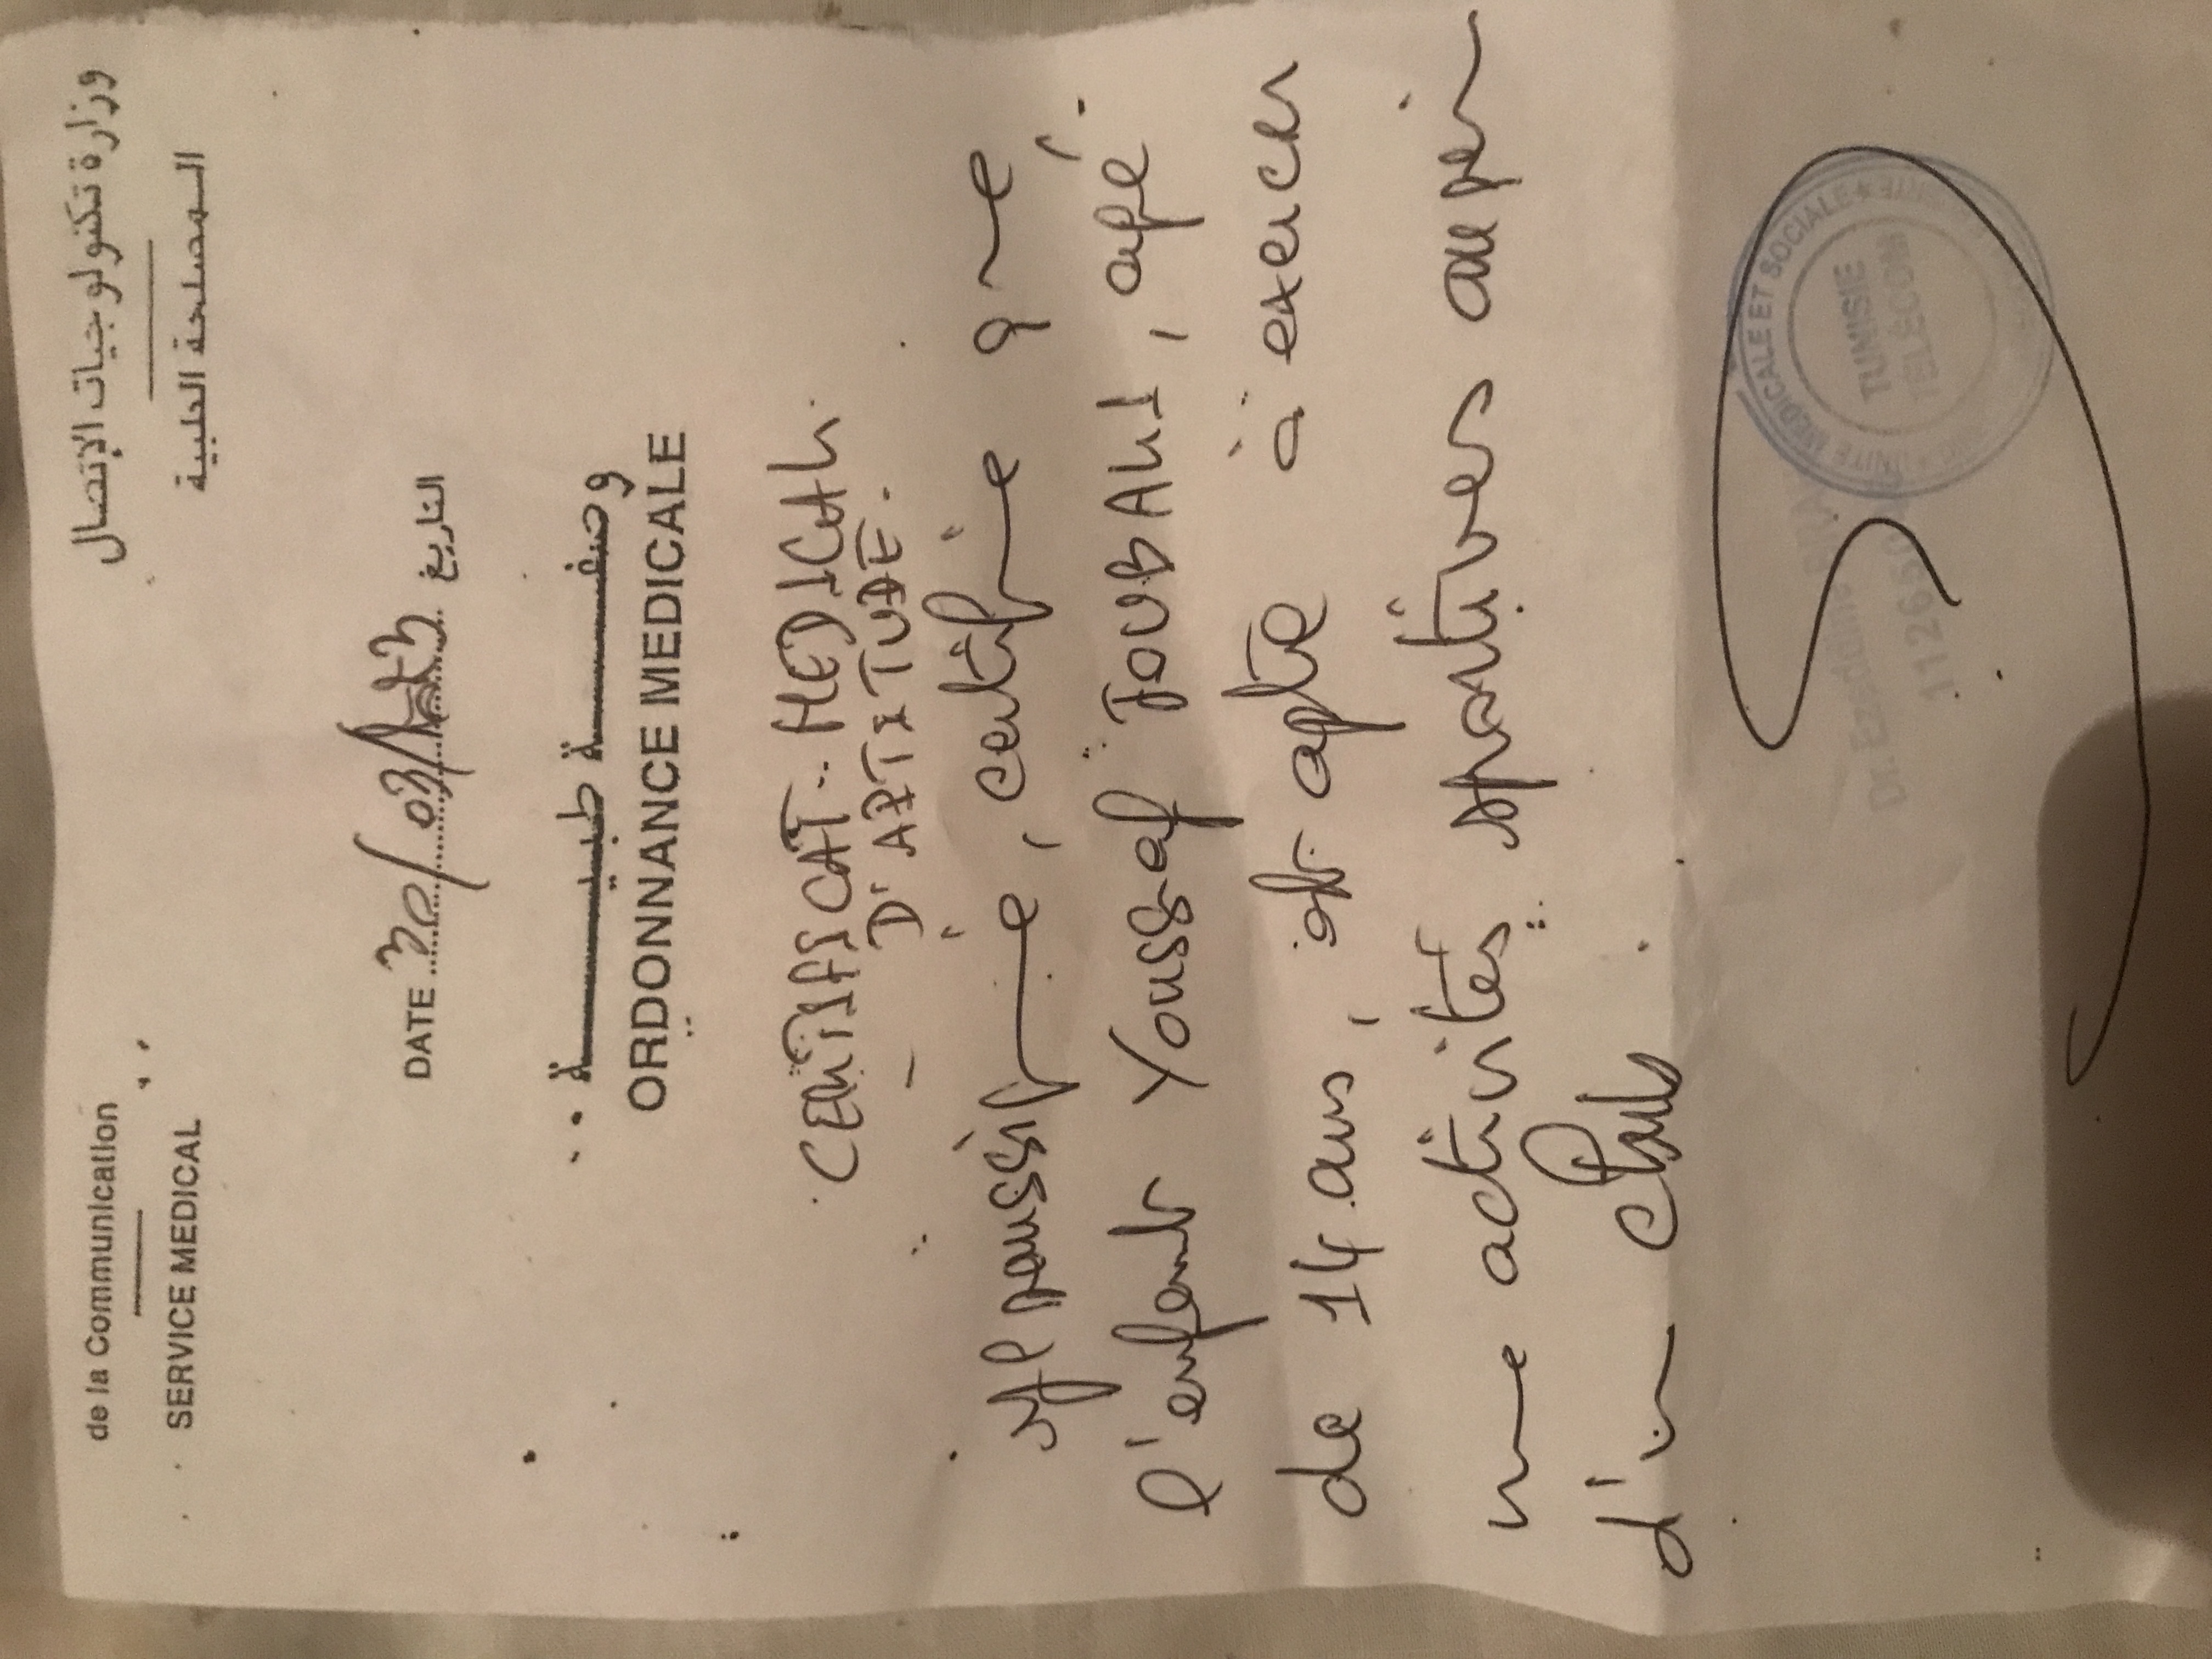 de la Communication
SERVICE MEDICAL
وزارة تكنولوجيات الإتصال
المصلحة الطبية
DATE 30/03/ التاريخ
وصفة طبية
ORDONNANCE MEDICALE
CERTIFICAT MEDICAL
D'APTITUDE.
Je soussigné, certifie que
l'enfant Youssef JOUBALI, agé
de 14 ans, est apte à exercer
une activités sportives au sein
d'un Club.
UNITE MEDICALE ET SOCIALE
TUNISIE
TELECOM
Dr. Ezzdine